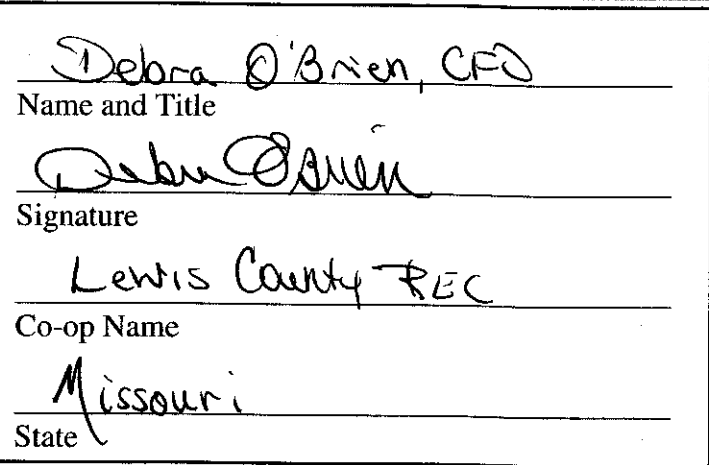 Debra O'Brien, CFO
Name and Title
Debra O'Brien
Signature
Lewis County REC
Co-op Name
Missouri
State